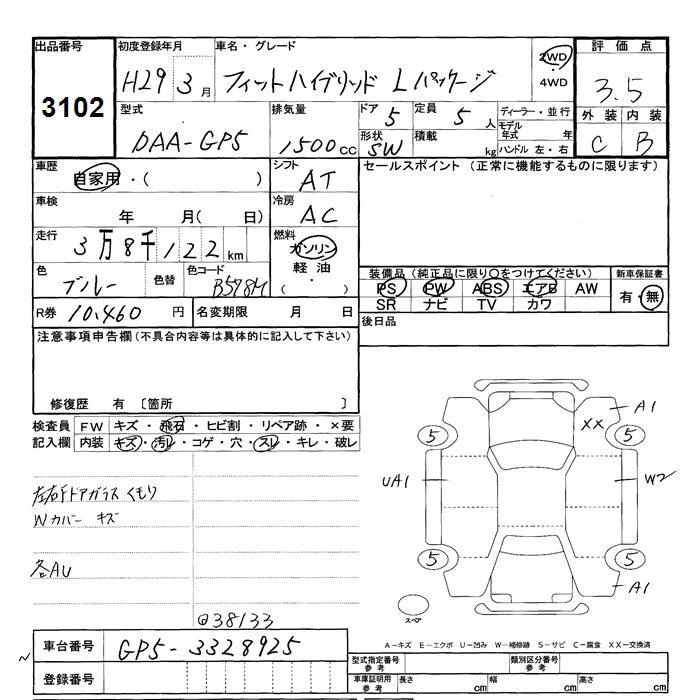 出品番号 初度登録年月 車名・グレード 2WD 評価点
3102 H29 3月 フィットハイブリッド Lパッケージ ・ 4WD 3.5
型式 排気量 ドア 5 定員 5人 ディーラー・並行 外装 内装
DAA-GP5 1500cc 形状 SW 積載 kg モデル年式 年 ハンドル 左・右 C B
車歴 自家用・( ) シフト AT セールスポイント (正常に機能するものに限ります)
車検 年 月( 日) 冷房 AC
走行 3万8千122km 燃料 ガソリン
軽油
・
( )
色 ブルー 色替 色コード B578M 装備品 (純正品に限り○をつけてください) 新車保証書
PS PW ABS エアB AW 有・無
SR ナビ TV カワ
R券 10,460円 名変期限 月 日 後日品
注意事項申告欄(不具合内容等は具体的に記入して下さい)
修復歴 有 〔箇所 〕
検査員 FW キズ・飛石・ヒビ割・リペア跡・×要
記入欄 内装 キズ・汚レ・コゲ・穴・スレ・キレ・破レ
左右Fドアガラス くもり
Wカバー キズ
各AU
@38133
A1
XX
5 5
UA1 W2
5 5
A1
スペア
A-キズ E-エクボ U-凹み W-補修跡 S-サビ C-腐食 XX-交換済
車台番号 GP5-3328925 型式指定番号 参考 類別区分番号 参考
登録番号 車庫証明用 参考 長さ cm 幅 cm 高さ cm